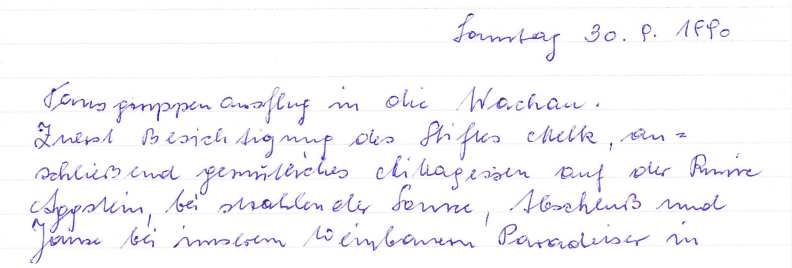 Sonntag 30. 9. 1990
Tanzgruppenausflug in die Wachau.
Zuerst Besichtigung des Stiftes Melk, an=
schließend gemütliches Mittagessen auf der Ruine
Aggstein, bei strahlender Sonne, Abschluß und
Jause bei unserem Weinbauern Paradeiser in